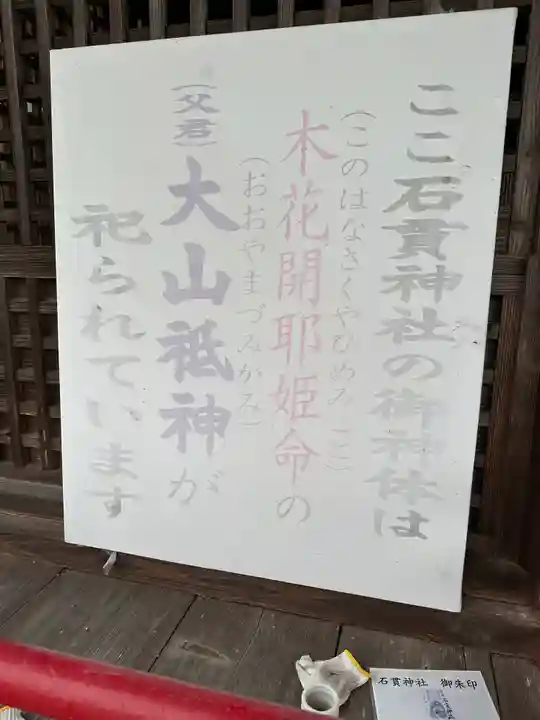 ここ石貫神社の御神体は
(このはなさくやひめみこと)
木花開耶姫命の
(おおやまづみかみ)
(父君)大山祗神が
祀られています
石貫神社 御朱印